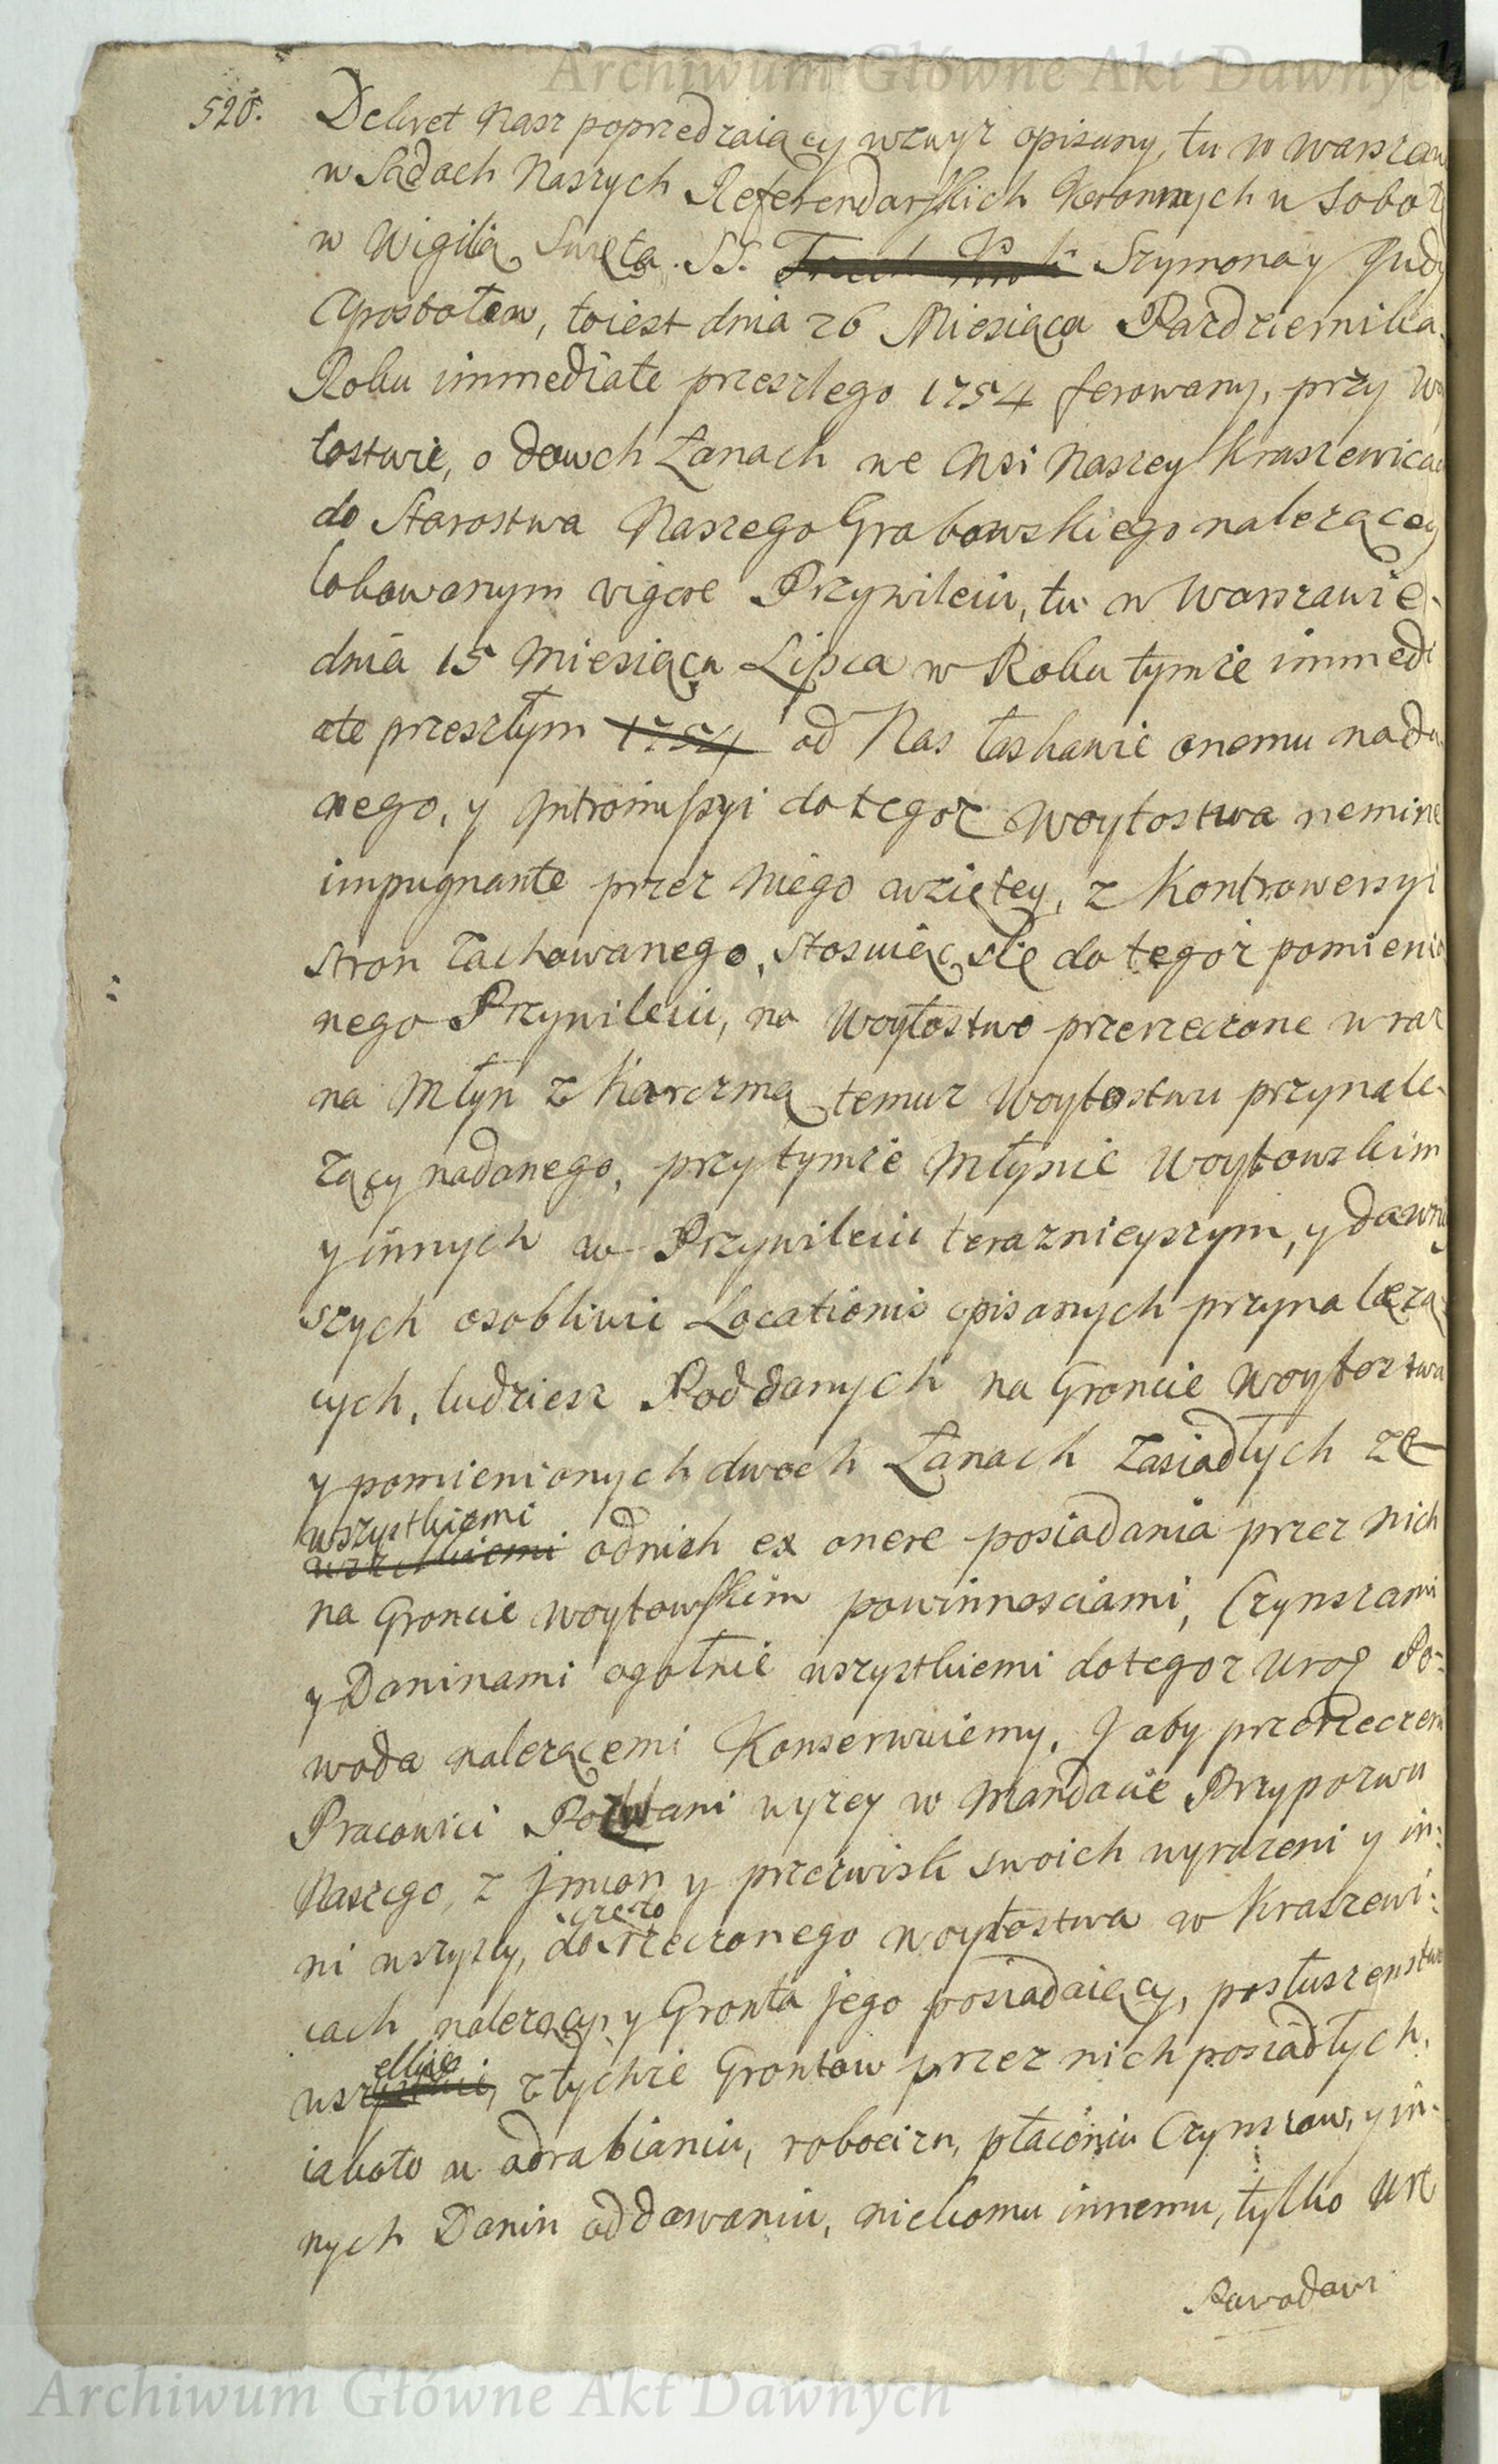 Archiwum Główne Akt Dawnych
520. Dekret Nasz poprzedzaiący wzwyż opisany, tu w Warszaw
w Sądach Naszych Referendarskich Koronnych w Sobotę
w Wigilią Swięta SS. Trzech Kroli Szymona y Judy
Apostołow, toiest dnia 26 Miesiąca Pazdziernika
Roku immediate przeszłego 1754 ferowany, przy Wo
tostwie, o dwuch Łanach we Wsi Naszey Kraszewicac
do Starostwa Naszego Grabowskiego nalezącey
lokowanym vigore Przywileiu, tu w Warszawie
dnia 15 Miesiąca Lipca w Roku tymze immedi
ate przeszłym 1754 od Nas łaskawie onemu nada
nego, y Intromissyi do tegoz Woytostwa nemine
impugnante przez Niego wziętey, z Kontrowersyi
stron zachowanego, stosuiąc się do tegoż pomienio
nego Przywileiu, na Woytostwo przerzeczone wraz
na Młyn z Karczmą temuz Woytostwu przynale-
zący nadanego, przy tymze Młynie Woytowskim
y innych w Przywileiu teraznieyszym, y dawni
szych osobliwie Locationis opisanych przynaleza
cych, ludziesz Poddanych na Groncie Woytostwa
y pomienionych dwoch Łanach zasiadłych ze
wszystkiemi
odnich ex onere posiadania przez nich
na Groncie Woytowskim powinnosciami, Czynszami
y Daninami ogołnie wszystkiemi do tegoz Urog Po-
woda nalezącemi Konserwuiemy. J aby przerzeczeni
Pracowici Pozwani wyzey w Mandacie Przypozwu
Naszego, z Jmion y przezwisk swoich wyrazeni y in-
ni wszyscy, do rzeczonego Woytostwa w Kraszewi-
cach nalezący, y Gronta jego posiadaiący, posłuszenstwo
wszelkie, z tychze Grontow przez nich posiadłych,
iakoto w odrabianiu, robocizn, płaceniu Czynszow, y in-
nych Danin oddawaniu, nikomu innemu, tylko Ur
Powodowi
Archiwum Główne Akt Dawnych